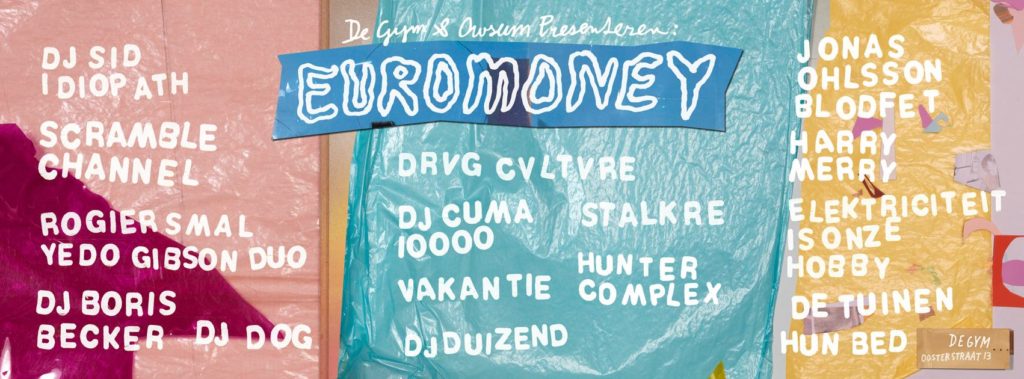 De Gym & Owsum Presenteren:
EUROMONEY
DJ SID
IDIOPATH
SCRAMBLE
CHANNEL
ROGIER SMAL
YEDO GIBSON DUO
DJ BORIS
BECKER DJ DOG
DRVG CVLTVRE
DJ CUMA STALKRE
10000
VAKANTIE HUNTER
COMPLEX
DJ DUIZEND
JONAS
OHLSSON
BLODFET
HARRY
MERRY
ELEKTRICITEIT
IS ONZE
HOBBY
DE TUINEN
HUN BED
DE GYM...
OOSTERSTRAAT 13